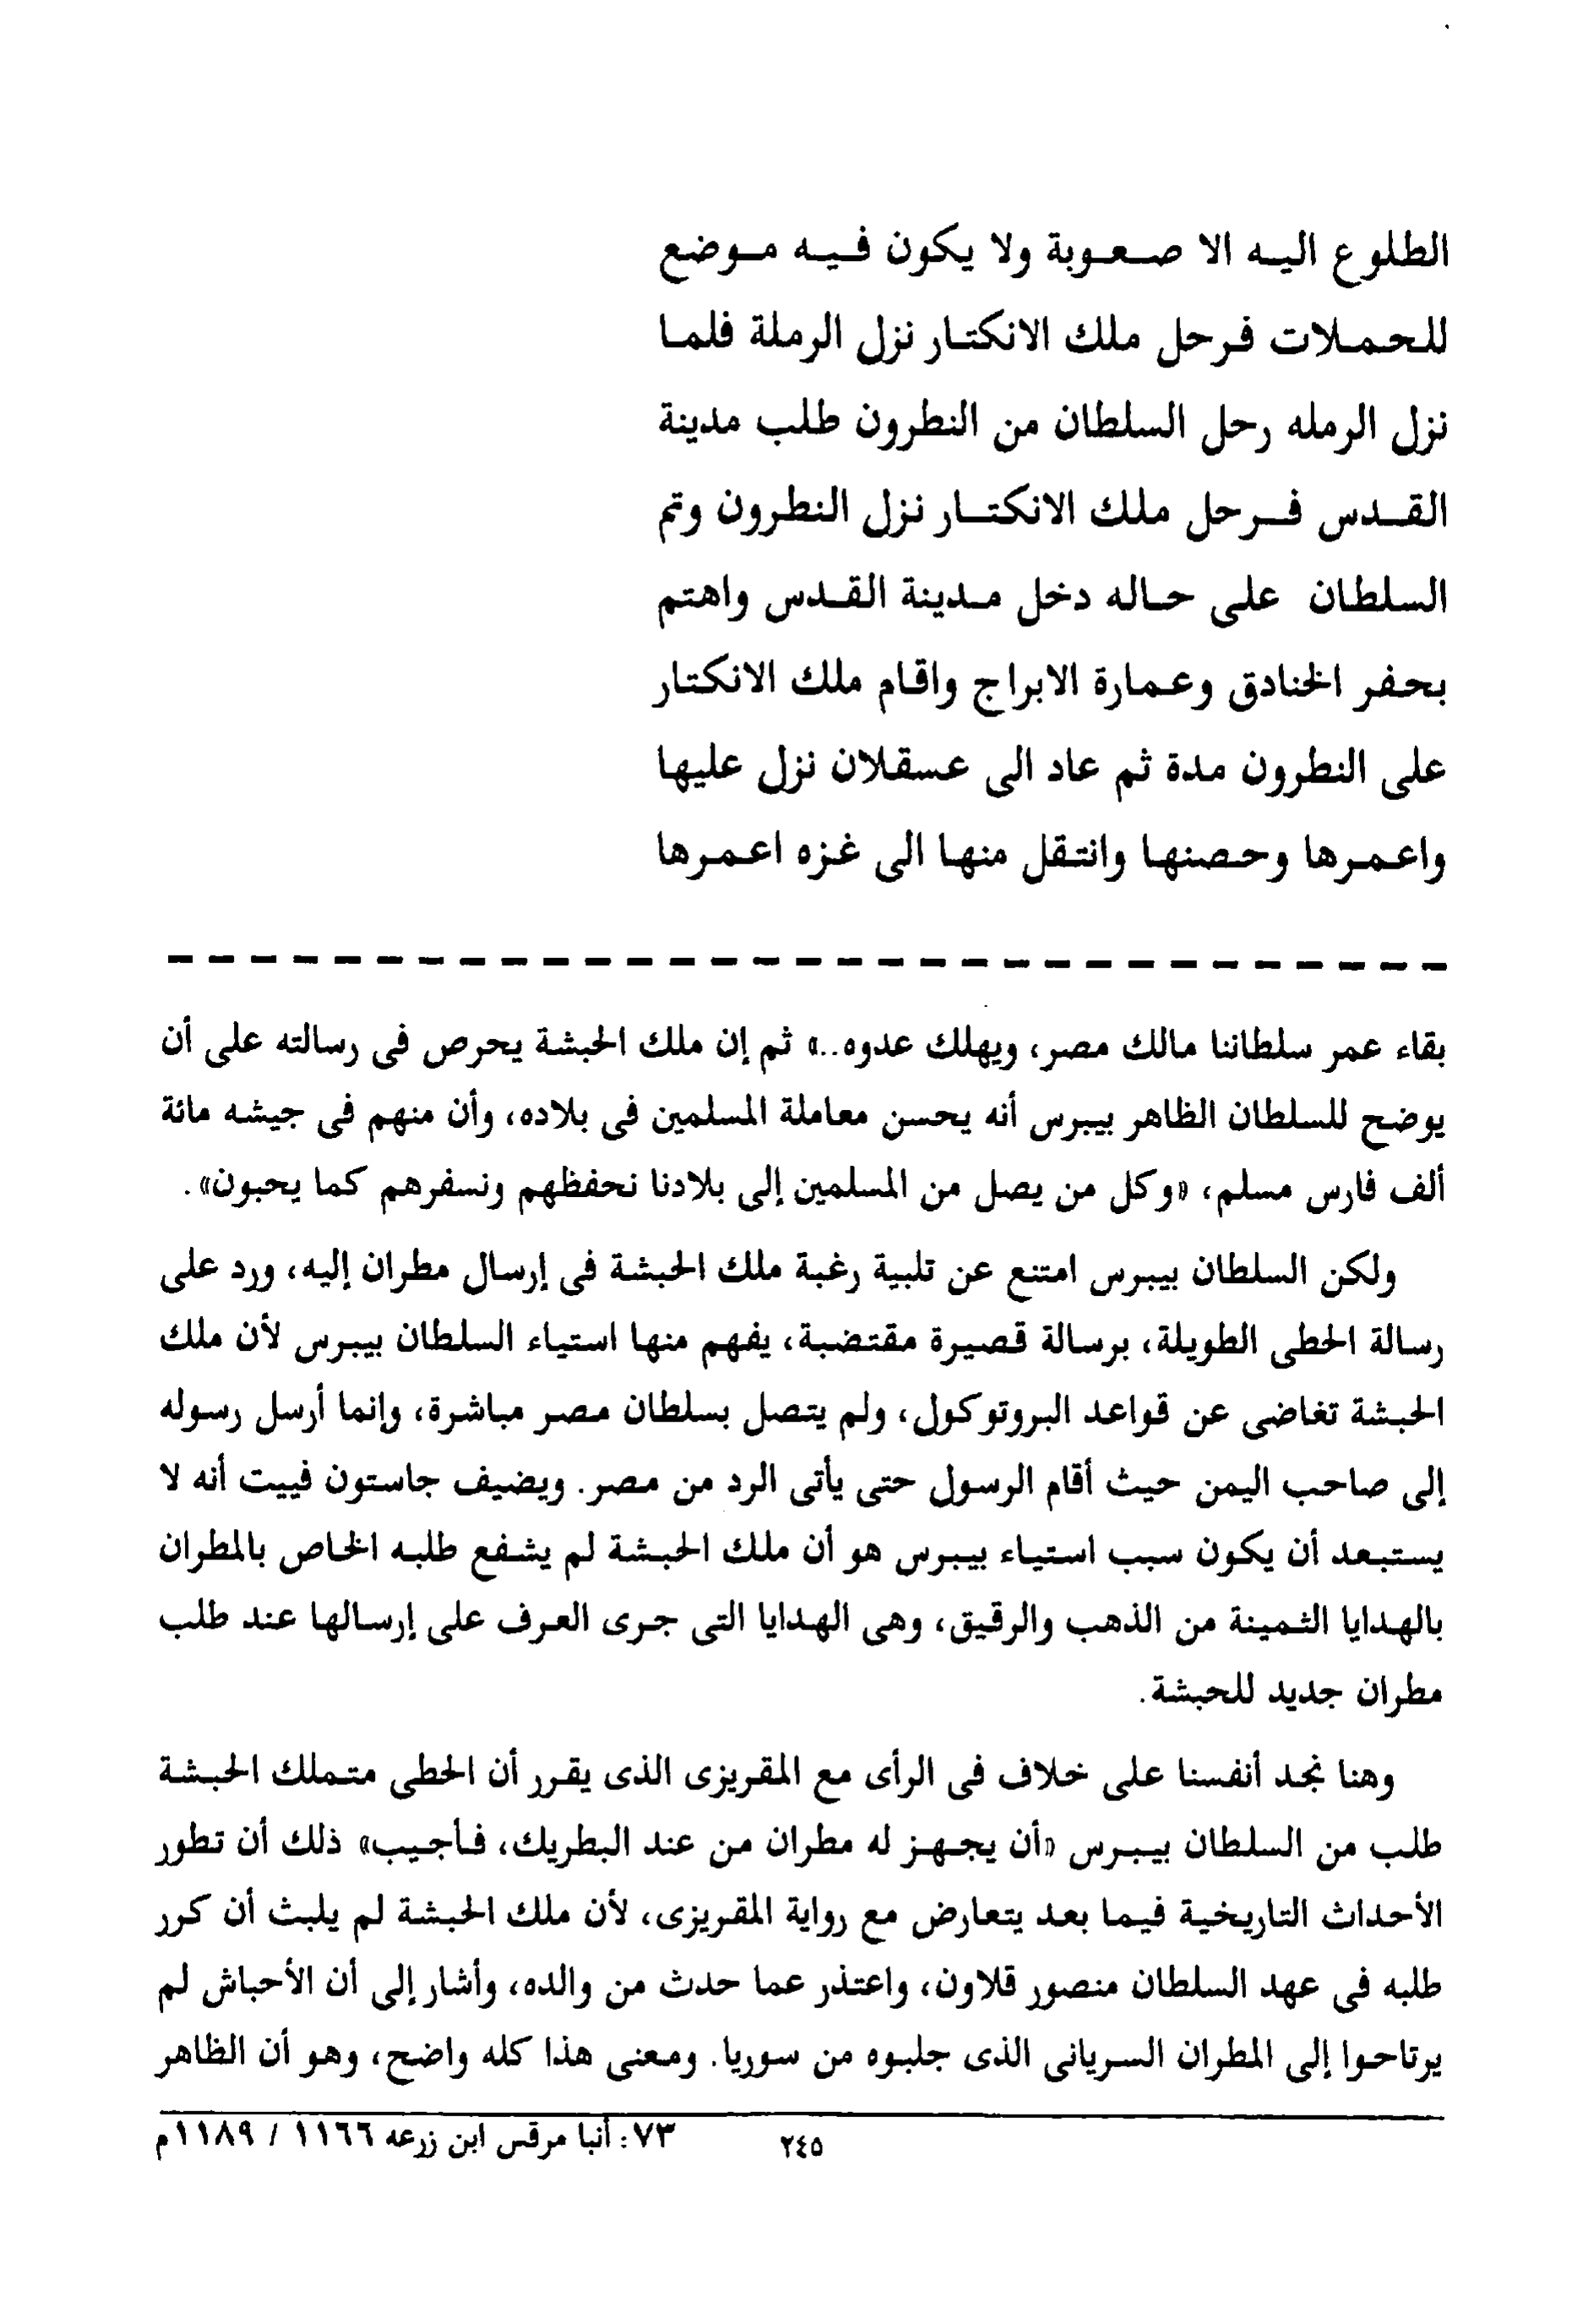 الطلوع اليه الا صعوبة ولا يكون فيه موضع
للحملات فرحل ملك الانكتار نزل الرملة فلما
نزل الرمله رحل السلطان من النطرون طلب مدينة
القدس فرحل ملك الانكتار نزل النطرون وتم
السلطان على حاله دخل مدينة القدس واهتم
بحفر الخنادق وعمارة الابراج واقام ملك الانكتار
على النطرون مدة ثم عاد الى عسقلان نزل عليها
واعمرها وحصنها وانتقل منها الى غزه اعمرها
بقاء عمر سلطاننا مالك مصر، ويهلك عدوه..» ثم إن ملك الحبشة يحرص فى رسالته على أن
يوضح للسلطان الظاهر بيبرس أنه يحسن معاملة المسلمين فى بلاده، وأن منهم فى جيشه مائة
ألف فارس مسلم، «وكل من يصل من المسلمين إلى بلادنا نحفظهم ونسفرهم كما يحبون».
ولكن السلطان بيبرس امتنع عن تلبية رغبة ملك الحبشة فى إرسال مطران إليه، ورد على
رسالة الحطى الطويلة، برسالة قصيرة مقتضبة، يفهم منها استياء السلطان بيبرس لأن ملك
الحبشة تغاضى عن قواعد البروتوكول، ولم يتصل بسلطان مصر مباشرة، وإنما أرسل رسوله
إلى صاحب اليمن حيث أقام الرسول حتى يأتى الرد من مصر. ويضيف جاستون فييت أنه لا
يستبعد أن يكون سبب استياء بيبرس هو أن ملك الحبشة لم يشفع طلبه الخاص بالمطران
بالهدايا الثمينة من الذهب والرقيق، وهى الهدايا التى جرى العرف على إرسالها عند طلب
مطران جديد للحبشة.
وهنا نجد أنفسنا على خلاف فى الرأى مع المقريزى الذى يقرر أن الحطى متملك الحبشة
طلب من السلطان بيبرس «أن يجهز له مطران من عند البطريك، فأجيب» ذلك أن تطور
الأحداث التاريخية فيما بعد يتعارض مع رواية المقريزى، لأن ملك الحبشة لم يلبث أن كرر
طلبه فى عهد السلطان منصور قلاون، واعتذر عما حدث من والده، وأشار إلى أن الأحباش لم
يرتاحوا إلى المطران السريانى الذى جلبوه من سوريا. ومعنى هذا كله واضح، وهو أن الظاهر
٢٤٥ ٧٣: أنبا مرقس ابن زرعه ١١٦٦ / ١١٨٩م